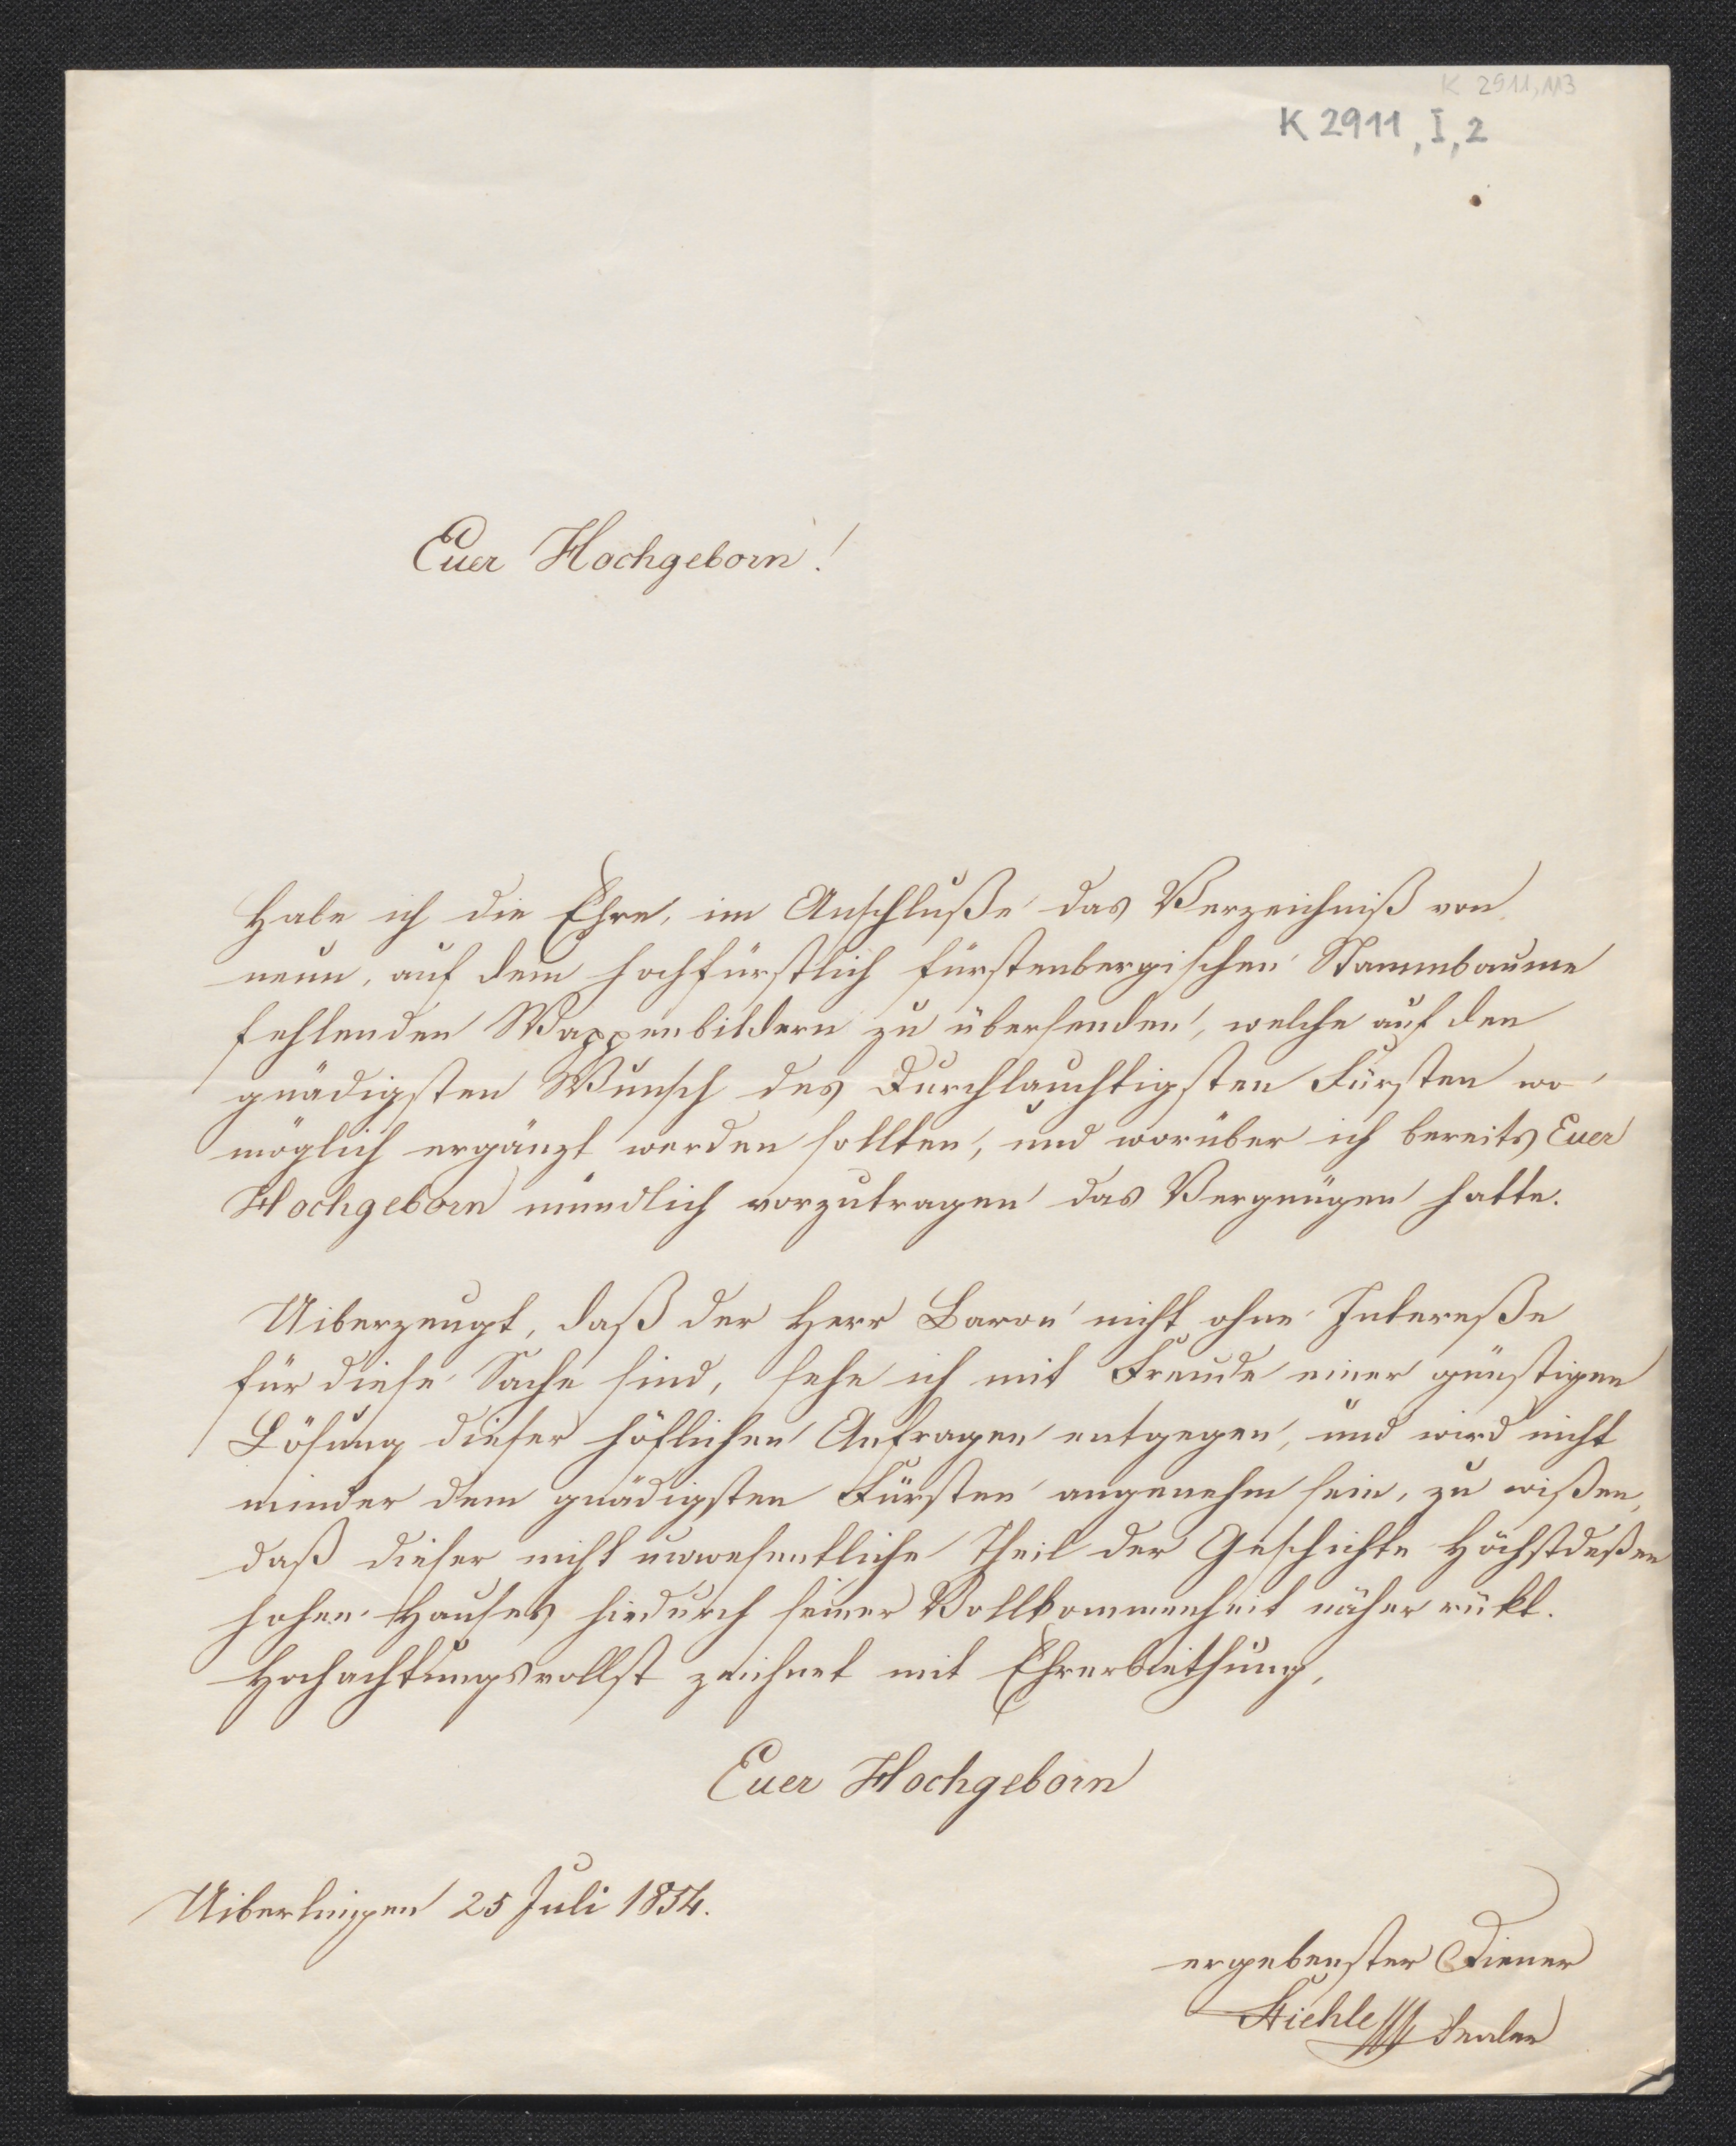 K 2911, 113
K 2911, I, 2
Euer Hochgeborn!
Habe ich die Ehre, im Anschluße das Verzeichniß von
neun, auf dem hochfürstlich fürstenbergischen Stammbaume
fehlenden Wappenbildern zu übersenden, welche auf den
gnädigsten Wunsch des Durchlauchtigsten Fürsten wo
möglich ergänzt werden sollten, und worüber ich bereits Euer
Hochgeborn mündlich vorzutragen das Vergnügen hatte.
Uiberzeugt, daß der Herr Baron nicht ohne Intereße
für diese Sache sind, sehe ich mit Freude einer günstigen
Lösung dieser höflichen Anfragen entgegen, und wird nicht
minder dem gnädigsten Fürsten angenehm sein, zu wißen,
daß dieser nicht unwesentliche Theil der Geschichte Höchstdeßen
hohen Hauses hiedurch seiner Vollkommenheit näher rükt.
Hochachtungsvollst zeichnet mit Ehrerbiethung,
Euer Hochgeborn
Uiberlingen 25 Juli 1854.
ergebenster Diener
Stiehle